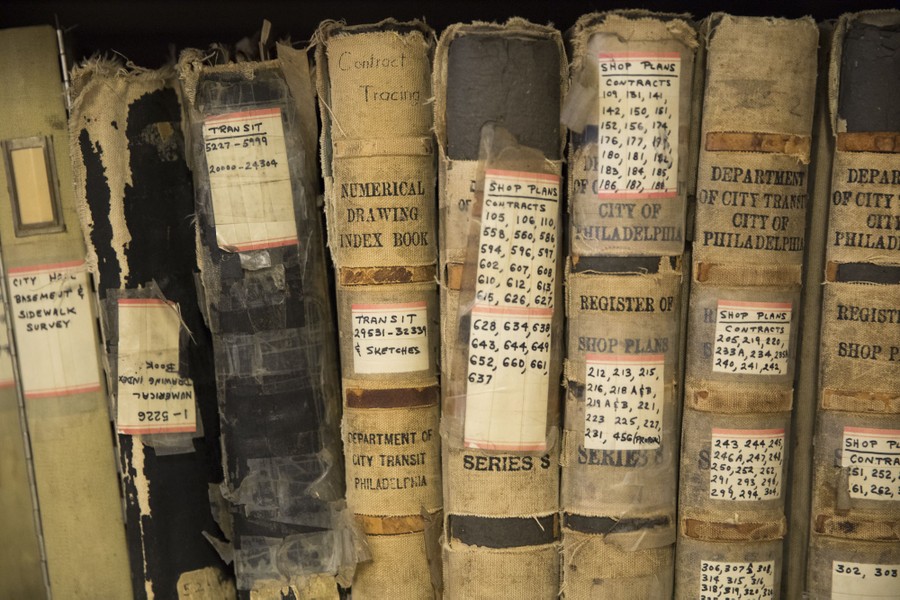 CITY HALL
BASEMENT &
SIDEWALK
SURVEY
NUMERICAL
DRAWING INDEX
BOOK
1-5226
TRANSIT
5227-5999
20000-24304
Contract
Tracing
NUMERICAL
DRAWING
INDEX BOOK
TRANSIT
29531-32339
& SKETCHES
DEPARTMENT OF
CITY TRANSIT
PHILADELPHIA
SHOP PLANS
CONTRACTS
105, 106, 110,
558, 560, 586
594, 596, 597,
602, 607, 608
610, 612, 613
615, 626, 627,
628, 634, 638
643, 644, 649
652, 660, 661,
637
SERIES S
SHOP PLANS
CONTRACTS
109, 131, 141,
142, 150, 151,
152, 156, 174,
176, 177, 179,
180, 181, 182,
183, 184, 185,
186, 187, 188,
CITY OF
PHILADELPHIA
REGISTER OF
SHOP PLANS
212, 213, 215,
216, 218 A&B,
219 A&B, 221,
223 225, 227,
231, 456
SERIES S
DEPARTMENT
OF CITY TRANSIT
CITY OF
PHILADELPHIA
SHOP PLANS
CONTRACTS
205, 219, 220,
233A, 234,
240, 241, 242,
243 244, 245,
246A, 247, 248,
250, 252, 262,
291, 293, 298,
294, 304
306, 307
314 315, 316
DEPAR
OF CITY
CITY
PHILAD
REGIST
SHOP P
SHOP PL
CONTRA
251, 252,
61, 262,
302, 303